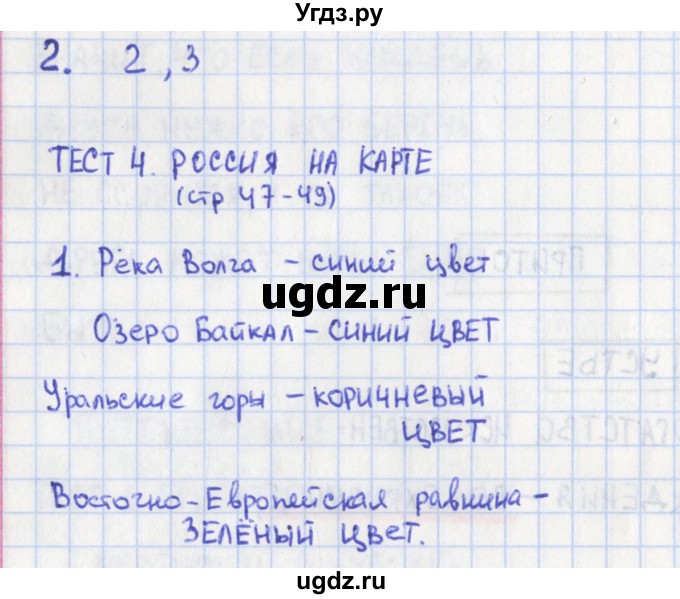 Угдз.ру
2. 2, 3
ТЕСТ 4. РОССИЯ НА КАРТЕ
(стр 47-49)
1. Река Волга - синий цвет
ugdz.ru
Озеро Байкал - СИНИЙ ЦВЕТ
Уральские горы - КОРИЧНЕВЫЙ
ЦВЕТ
Восточно-Европейская равнина -
ЗЕЛЁНЫЙ ЦВЕТ.
ugdz.ru